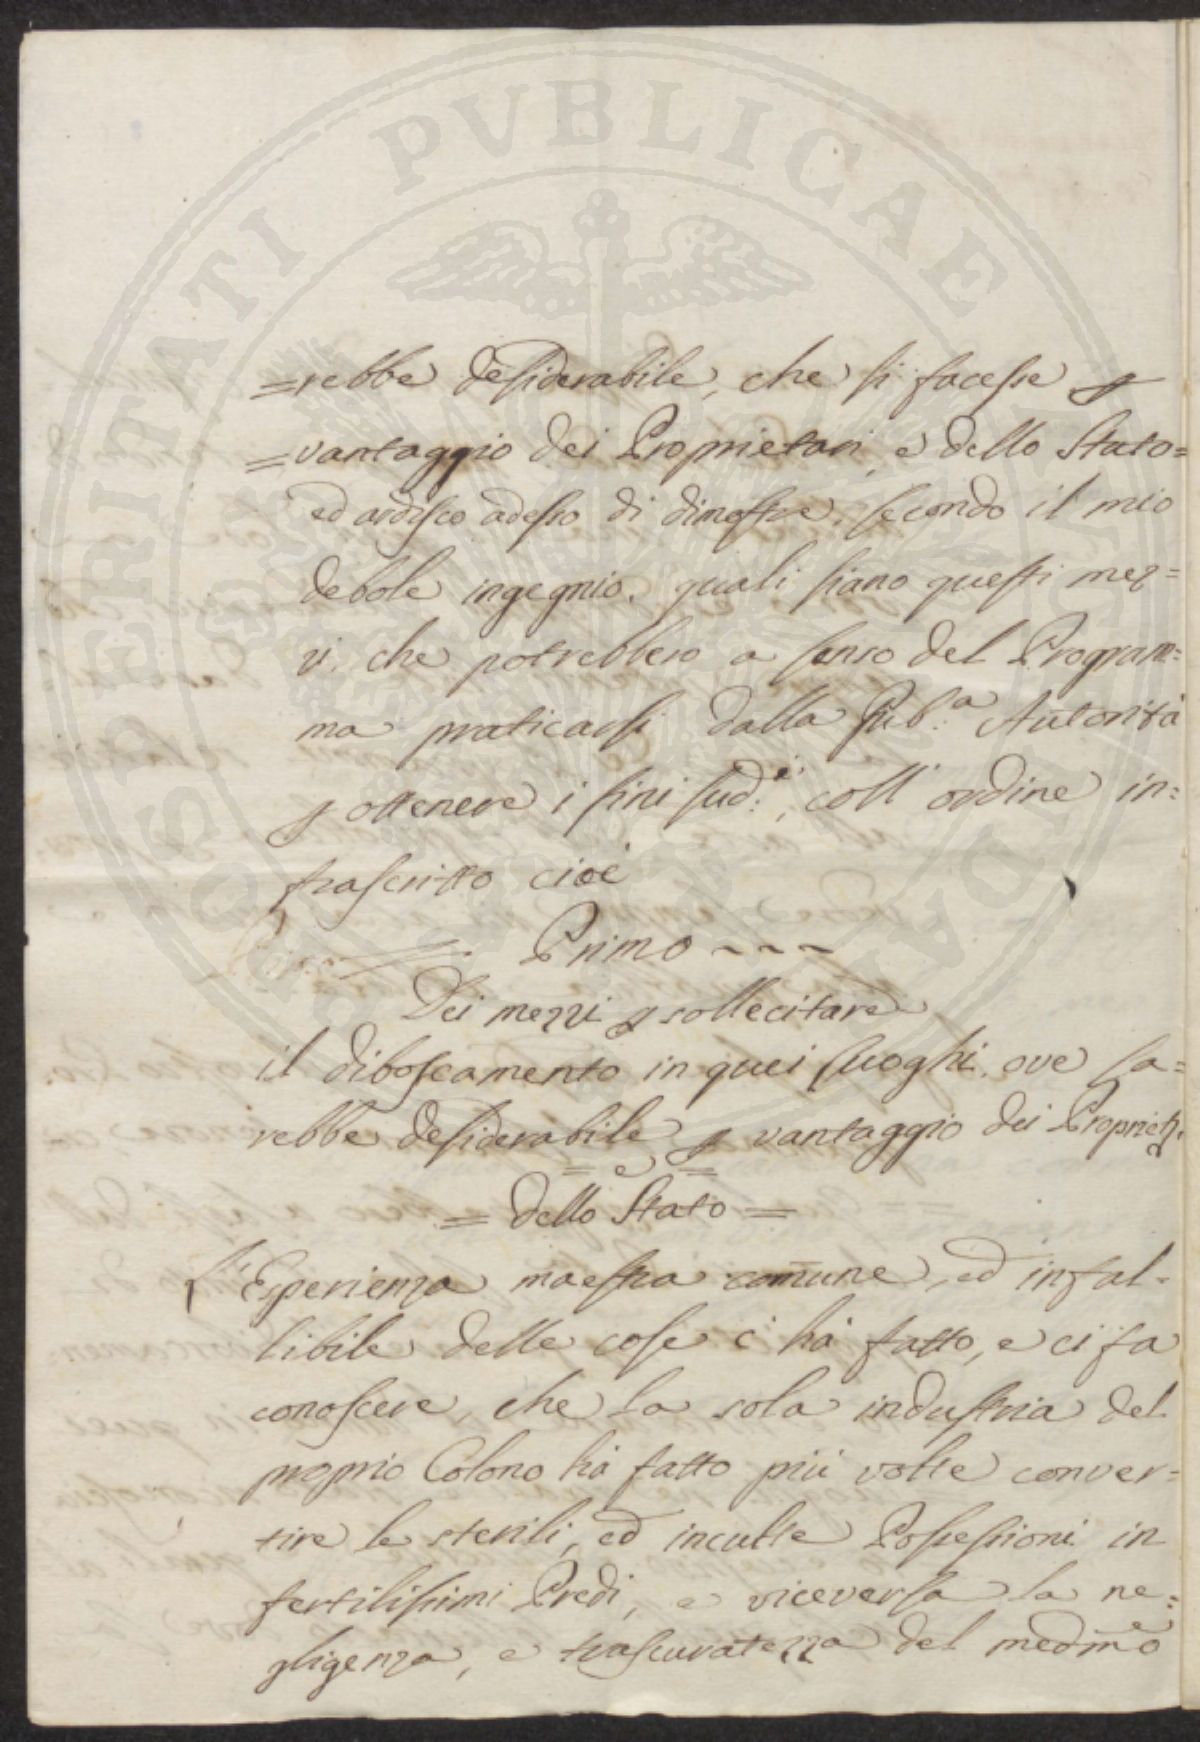 =rebbe desiderabile, che si facesse p
=vantaggio dei Proprietari, e dello Stato=
ed ardisco adesso di dimostre, secondo il mio
debole ingegnio, quali siano questi mez=
zi, che potrebbero a senso del Program=
ma praticarsi dalla Pub:a Autorità
p ottenere i fini sud:i, coll' ordine in=
frascritto cioè
Primo ~ ~ ~
Dei mezzi p sollecitare
il diboscamento in quei Luoghi, ove sa=
rebbe desiderabile p vantaggio dei Propriet:
= e =
= dello Stato =
L'Esperienza maestra comune, ed infal-
libile delle cose ci hà fatto, e ci fa
conoscere, che la sola industria del
proprio Colono hà fatto più volte conver-
tire le sterili, ed inculte Possessioni in
fertilissimi Predi, e viceversa la ne=
gligenza, e trascuratezza del medmo
PROSPERITATI PVBLICAE